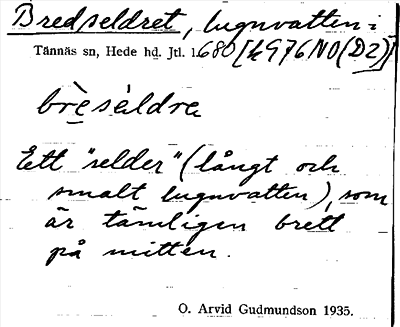 Bredseldret, lugnvatten i
Tännäs sn, Hede hd. Jtl. 1680 [h976NO(D2)]
brèsèldre
Ett "selder" (långt och
smalt lugnvatten), som
är tämligen brett
på mitten.
O. Arvid Gudmundson 1935.